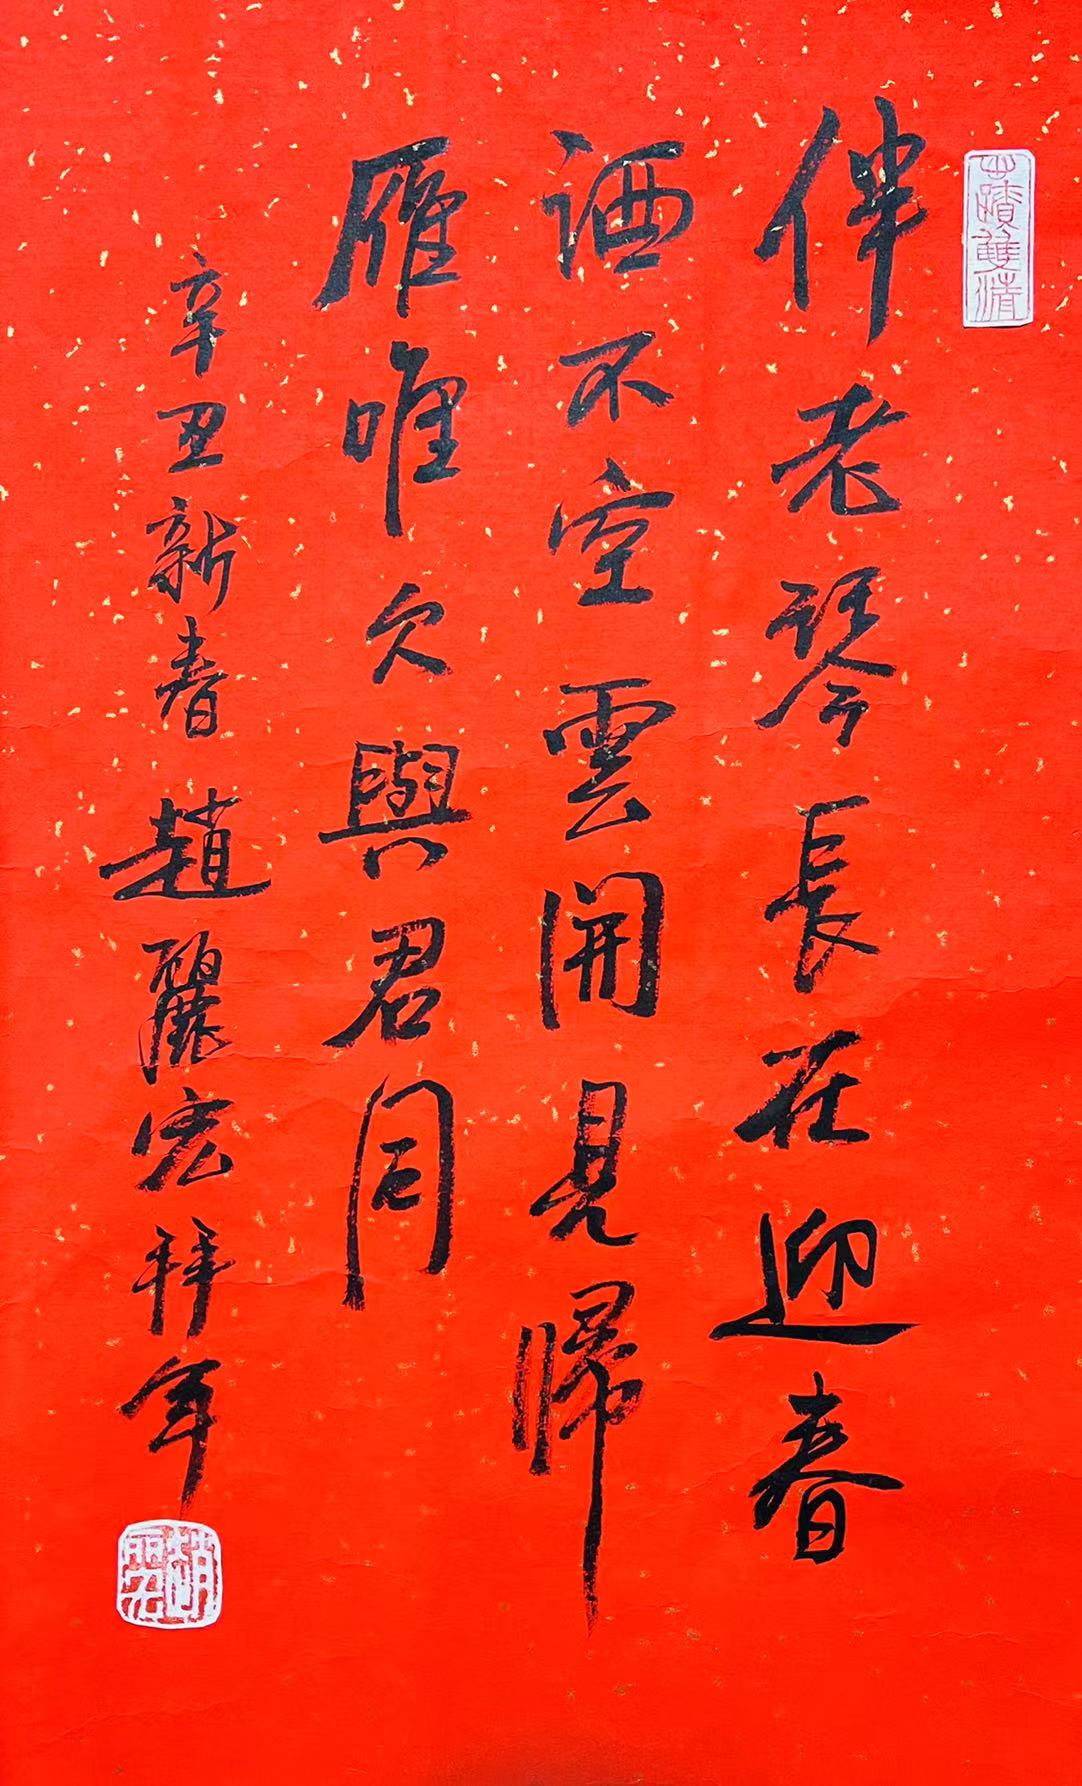 心蹟雙清
伴老琴長在迎春
酒不空雲開見歸
雁唯欠與君同
辛丑新春 趙麗宏拜年
趙麗宏